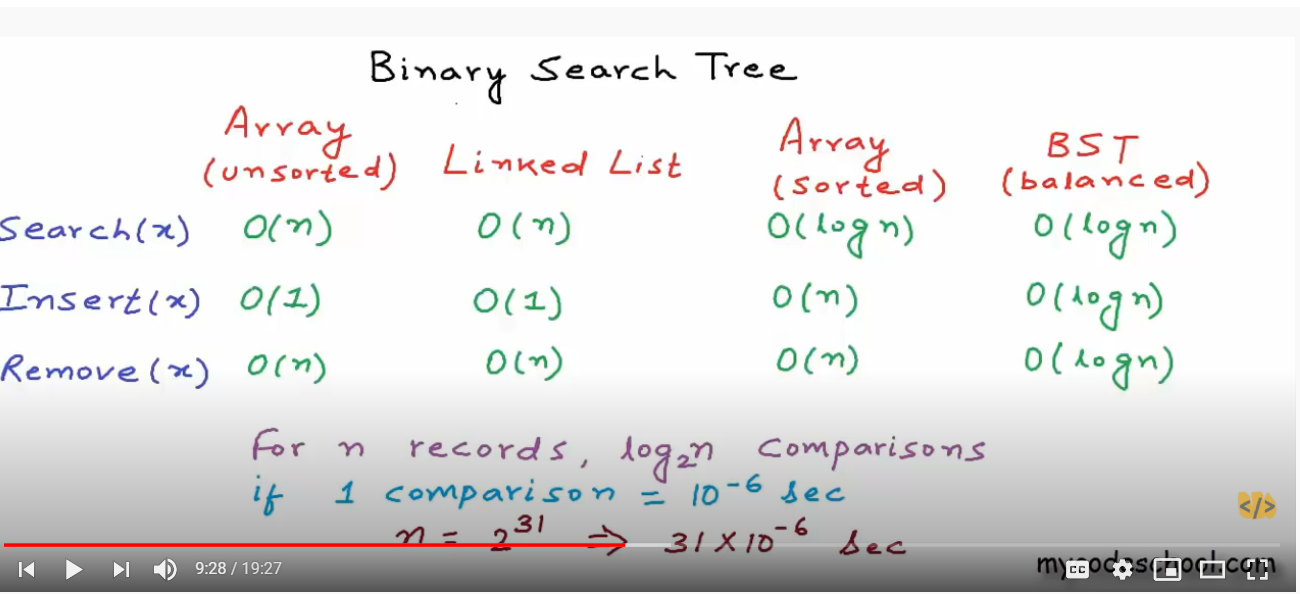 Binary Search Tree
Array (unsorted) Linked List Array (sorted) BST (balanced)
Search(x) O(n) O(n) O(log n) O(log n)
Insert(x) O(1) O(1) O(n) O(log n)
Remove(x) O(n) O(n) O(n) O(log n)
For n records, log₂n comparisons
if 1 comparison = 10⁻⁶ sec
n = 2³¹ ⇒ 31×10⁻⁶ sec
</>
9:28 / 19:27
mycodeschool.com
CC